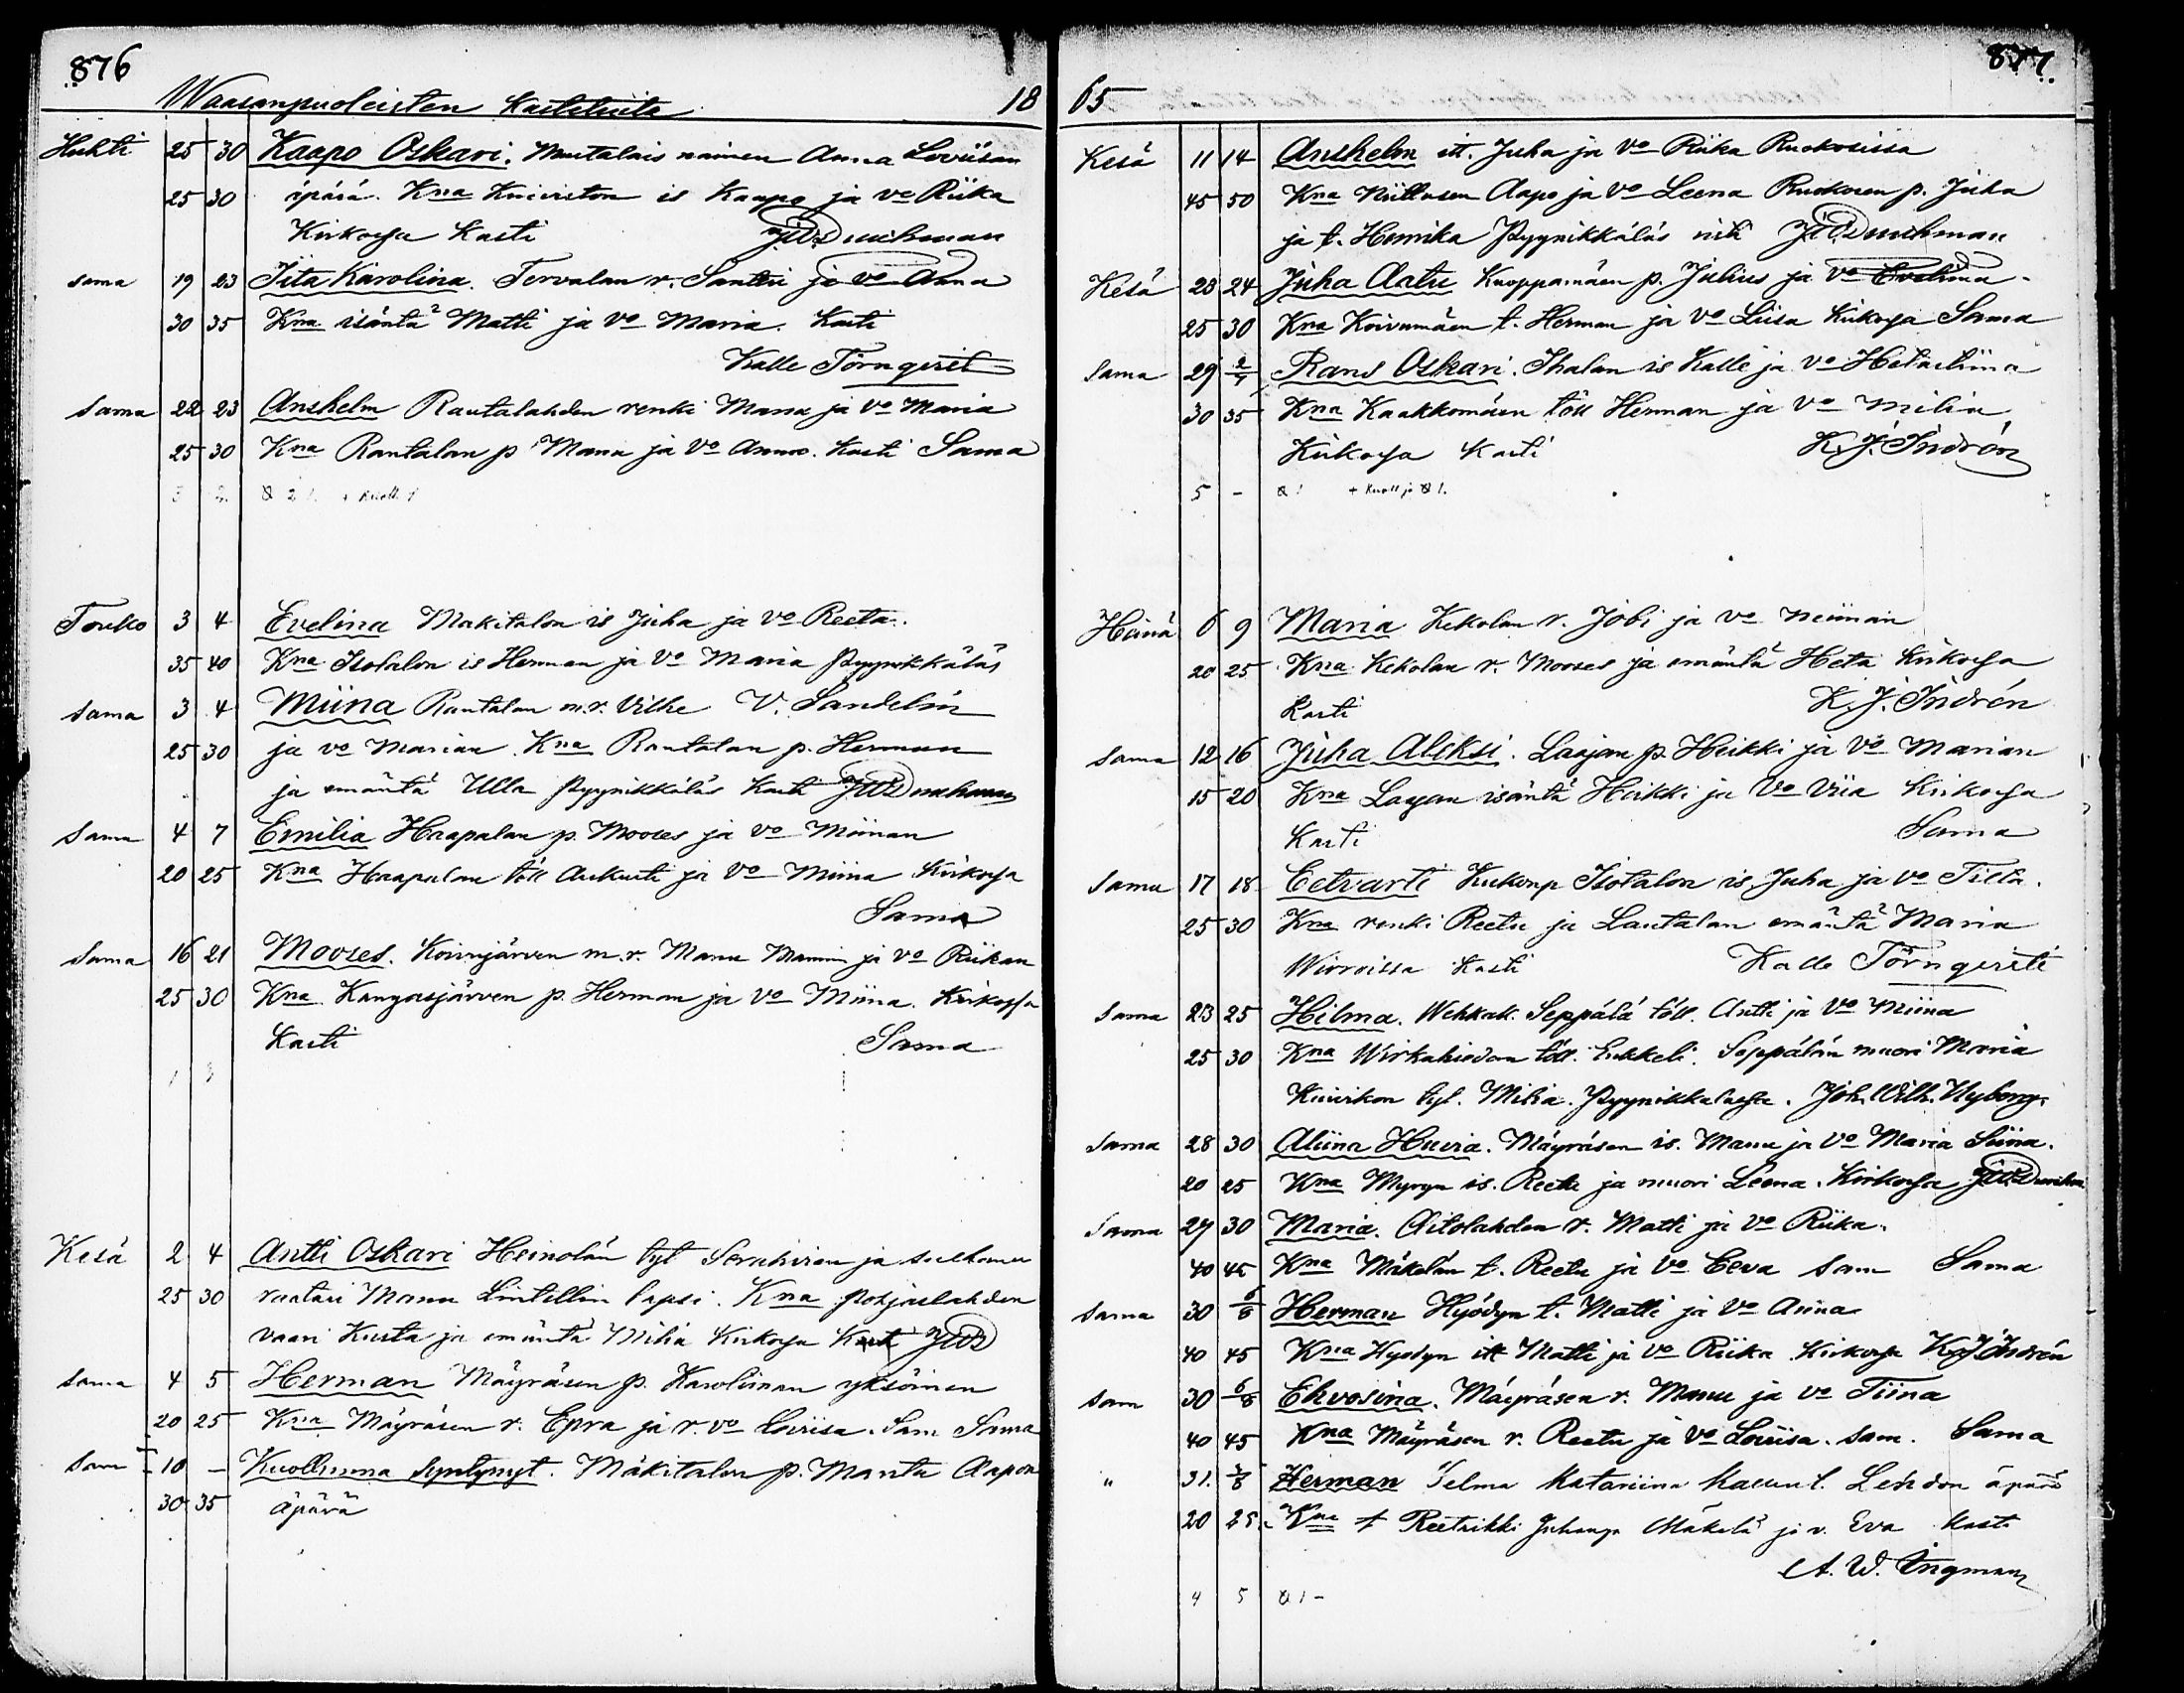 876
Waasanpuoleisten Kastetuita 18
Huhti 25 30 Kaapo Oskari. Muutalais nainen Anna Loviisan
25 30 äpärä. Kna Kuiviston is Kaapo ja vo Riika
Kirkossa Kasti
sama 19 23 Iita Karolina. Tervalan r. Santeri ja vo Anna
30 35 Kna isäntä Matti ja vo Maria. Kasti
Kalle Törnqvist
sama 22 23 Anshelm Rautalahden renki Manu ja vo Maria
25 30 Kna Rantalan p Manu ja vo Anna. Kasti Sama
Touko 3 4 Evelina Mäkitalon is Juha ja vo Reeta.
35 40 Kna Isotalon is Herman ja vo Maria Pyynikkäläs
sama 3 4 Miina Rautalan m.r. Vilhe V. Sandelin
25 30 ja vo Marian. Kna Rautalan p. Herman
ja emäntä Ulla Pyynikkäläs Kasti
Sama 4 7 Emilia Haapalan p. Mooses ja vo Miinan
20 25 Kna Haapalan töll Aukusti ja vo Miina Kirkossa
Sama
Sama 16 21 Mooses. Koivujärven m.r. Manu ja vo Riikan
25 30 Kna Kangasjärven p. Herman ja vo Miina. Kirkossa
Kasti Sama
Kesä 2 4 Antti Oskari Heinolän tyt ja
25 30 raatari Manu Lintellin lapsi. Kna Pohjaslahden
vaari Kusta ja emäntä Milia Kirkossa Kasti
sama 4 5 Herman Mäyräsen p. Karoliinan yksöinen
20 25 Kna Mäyräsen r. Epra ja r. vo Loviisa. Sam Sama
Sam 10 – Kuolluna Syntynyt. Mäkitalon p. Mantu Aapon
30 35 äpärä
877.
65
Kesä 11 14 Anshelm itt. Juha ja vo Riika Ruokosissa
45 50 Kna Aapo ja vo Leena Ruokosen p. Juha
ja t. Hennika Pyynikkäläs
Kesä 23 24 Juha Aatu Kuoppamäen p. Julius ja vo Evelina
25 30 Kna Koivumäen t. Herman ja vo Liisa Kirkossa Sama
Sama 29 2/7 Rans Oskari. Ihalan is Kalle ja vo
30 35 Kna Kaakkomäen töll Herman ja vo Milia
Kirkossa Kasti K. J. Indrén
5 –
Heinä 6 9 Maria Kekolan r. Jobi ja vo Miinan
20 25 Kna Kekolan r. Mooses ja emäntä Heta Kirkossa
Kasti K. J. Indrén
Sama 12 16 Juha Aleksi. Laajan p. Heikki ja vo Marian
15 20 Kna Laajan isäntä Heikki ja vo Viia Kirkossa
Kasti Sama
Sama 17 18 Eetvarti Isotalon is Juha ja vo Tilta.
25 30 Kna renki Reetu ja Lautalan emäntä Maria
Wirroissa Kasti Kalle Törnqvisti
Sama 23 25 Hilma. Wehkak. Seppälä töll. Antti ja vo Miina
25 30 Kna töll. Erkkeli. Seppälän muori Maria
tyt. Milia. Joh. Wilh. Nyborg.
Sama 28 30 Aliina. Mäyräsen is. Manu ja vo Maria Siina.
20 25 Kna Myryn is. Reetu ja muori Leena. Kirkossa
Sama 29 30 Maria. Aitolahden r. Matti ja vo Riika.
40 45 Kna Mäkelän t. Reetu ja vo Eeva Sam Sama
Sama 30 6/8 Herman Hyödyn t. Matti ja vo Anna
40 45 Kna Hyödyn itt Matti ja vo Riika Kirkossa K. J. Indrén
Sam 30 6/8 Ehvosina. Mäyräsen r. Manu ja vo Tiina
40 45 Kna Mäyräsen r. Reetu ja vo Loviisa. Sam. Sama
" 31. Herman Selma Katariina Lehdon äpärä
20 25 Kna t Reetrikki Mäkelä ja v. Eva Kasti
A. W. Ingman
4 5